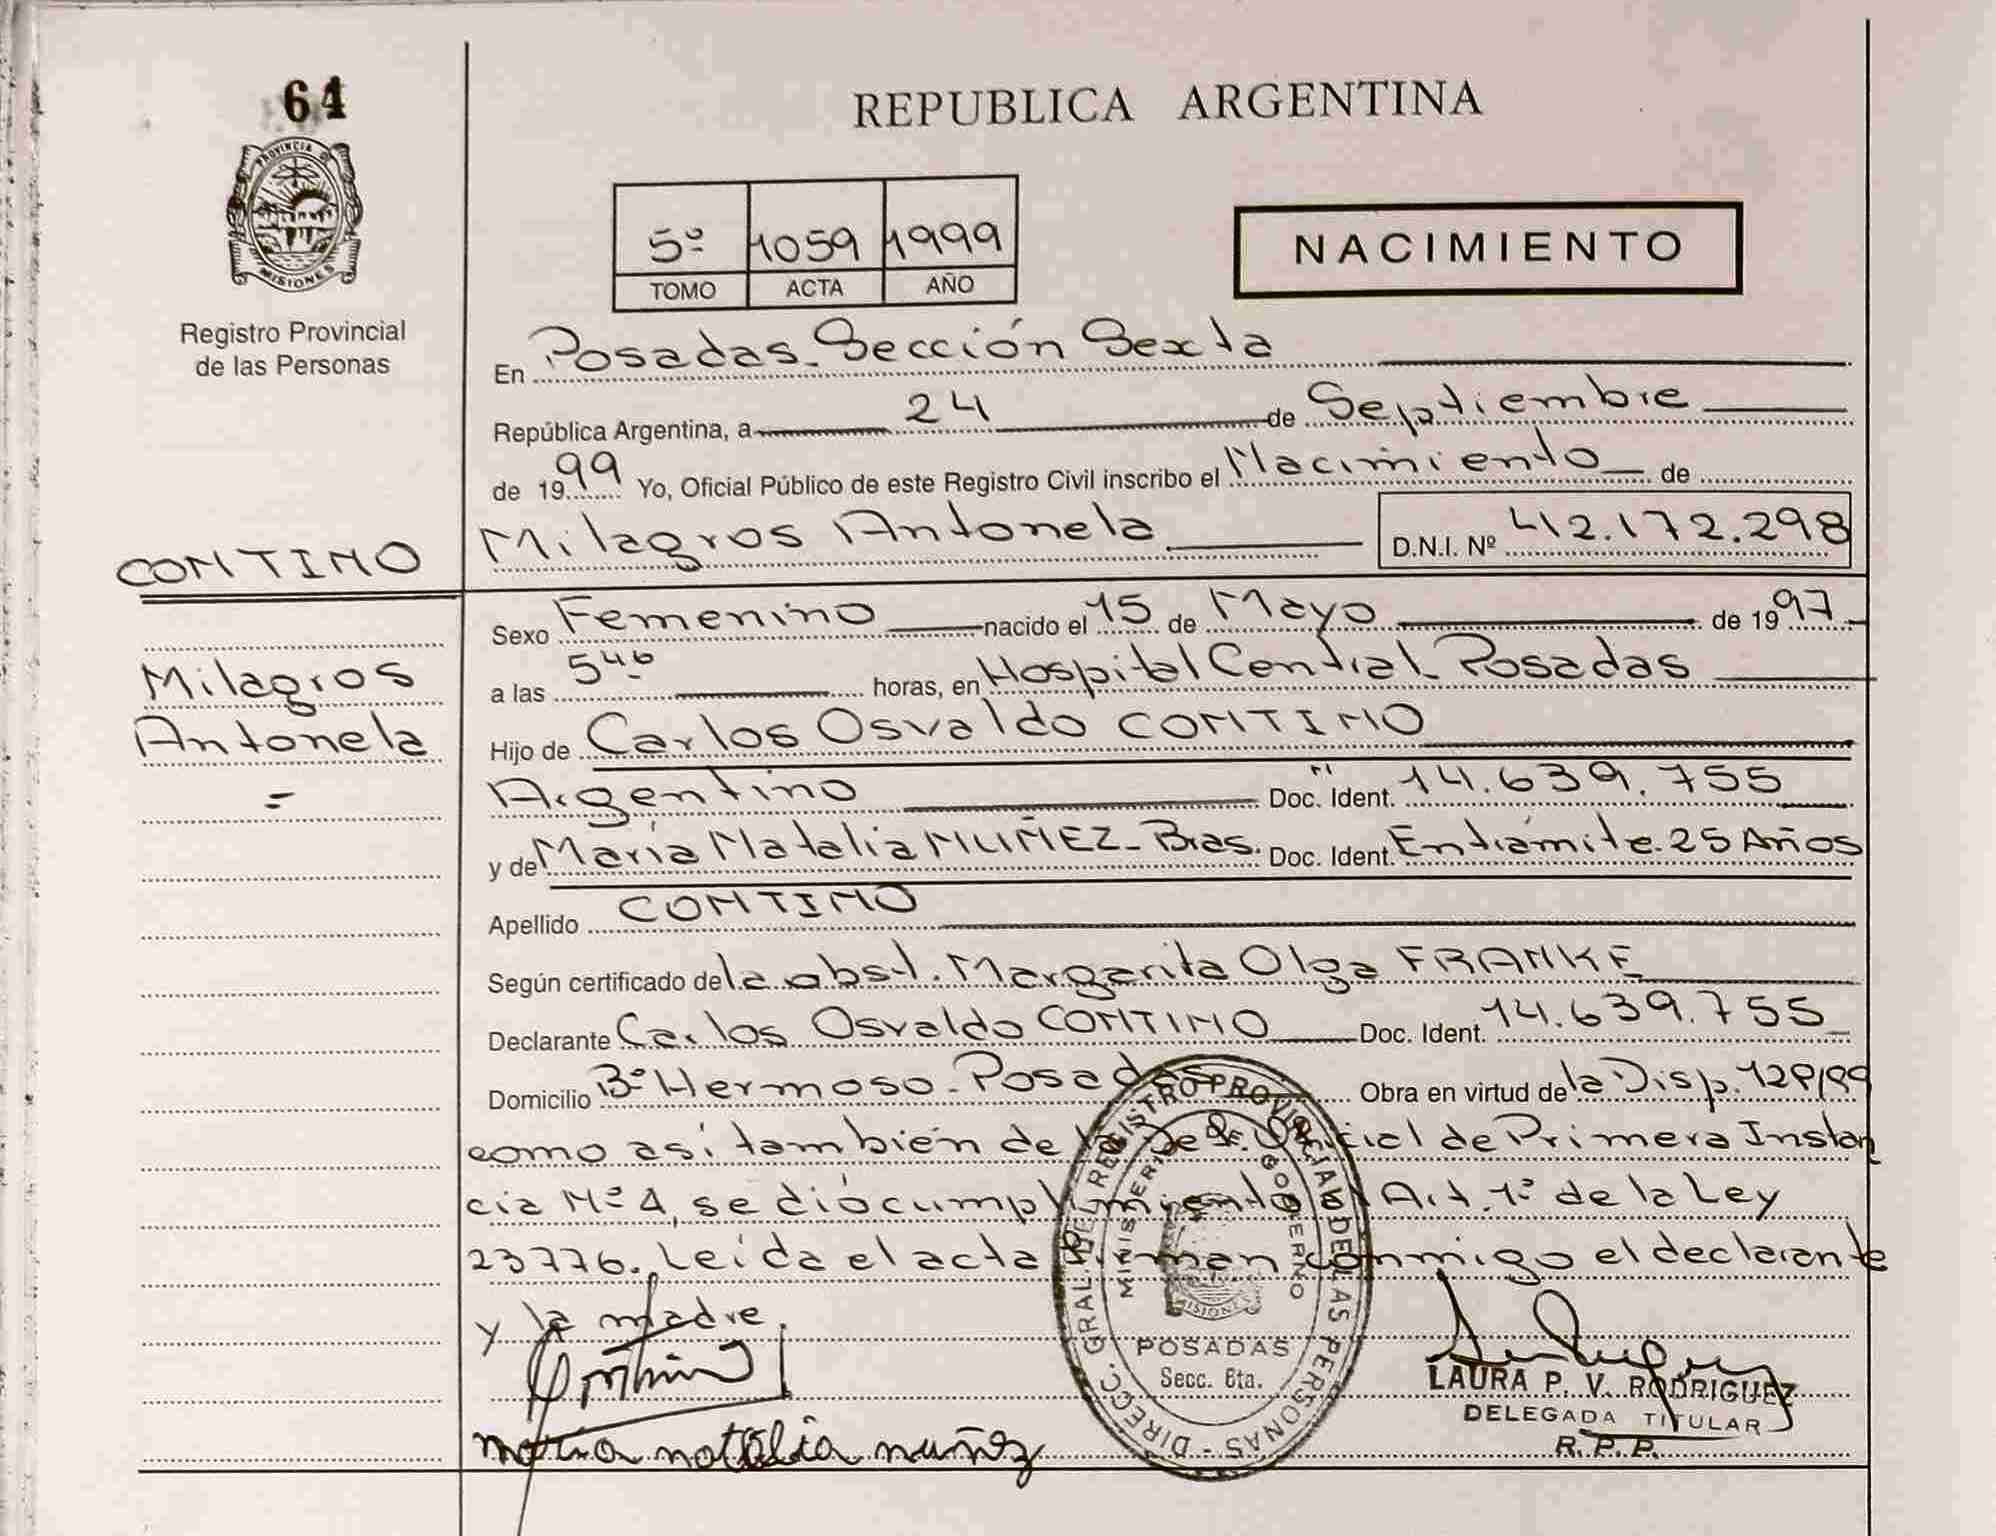 64
PROVINCIA DE
MISIONES
Registro Provincial
de las Personas
REPUBLICA ARGENTINA
5º 1059 1999
TOMO ACTA AÑO
NACIMIENTO
En Posadas-Sección Sexta
República Argentina, a 24 de Septiembre
de 1999 Yo, Oficial Público de este Registro Civil inscribo el Nacimiento de
Milagros Antonela D.N.I. Nº 42.172.298
CONTINO
Milagros
Antonela
=
Sexo Femenino nacido el 15 de Mayo de 1997
a las 5 46 horas, en Hospital Central-Posadas
Hijo de Carlos Osvaldo CONTINO
Argentino Doc. Ident. 14.639.755
y de María Natalia NUÑEZ-Bras. Doc. Ident. En trámite-25 Años
Apellido CONTINO
Según certificado de la obst. Margarita Olga FRANKE
Declarante Carlos Osvaldo CONTINO Doc. Ident. 14.639.755
Domicilio Bº Hermoso-Posadas Obra en virtud de la Disp.
como así también de la de Primera Instan
cia Nº4, se dió cumplimiento Art. 1º de la Ley
23776. Leída el acta firman conmigo el declarante
y la madre.
maria natalia nuñez
DIRECC. GRAL. DEL REGISTRO PROVINCIAL DE LAS PERSONAS -
MINISTERIO DE GOBIERNO
MISIONES
POSADAS
Secc. 6ta.
LAURA P. V. RODRIGUEZ
DELEGADA TITULAR
R. P. P.